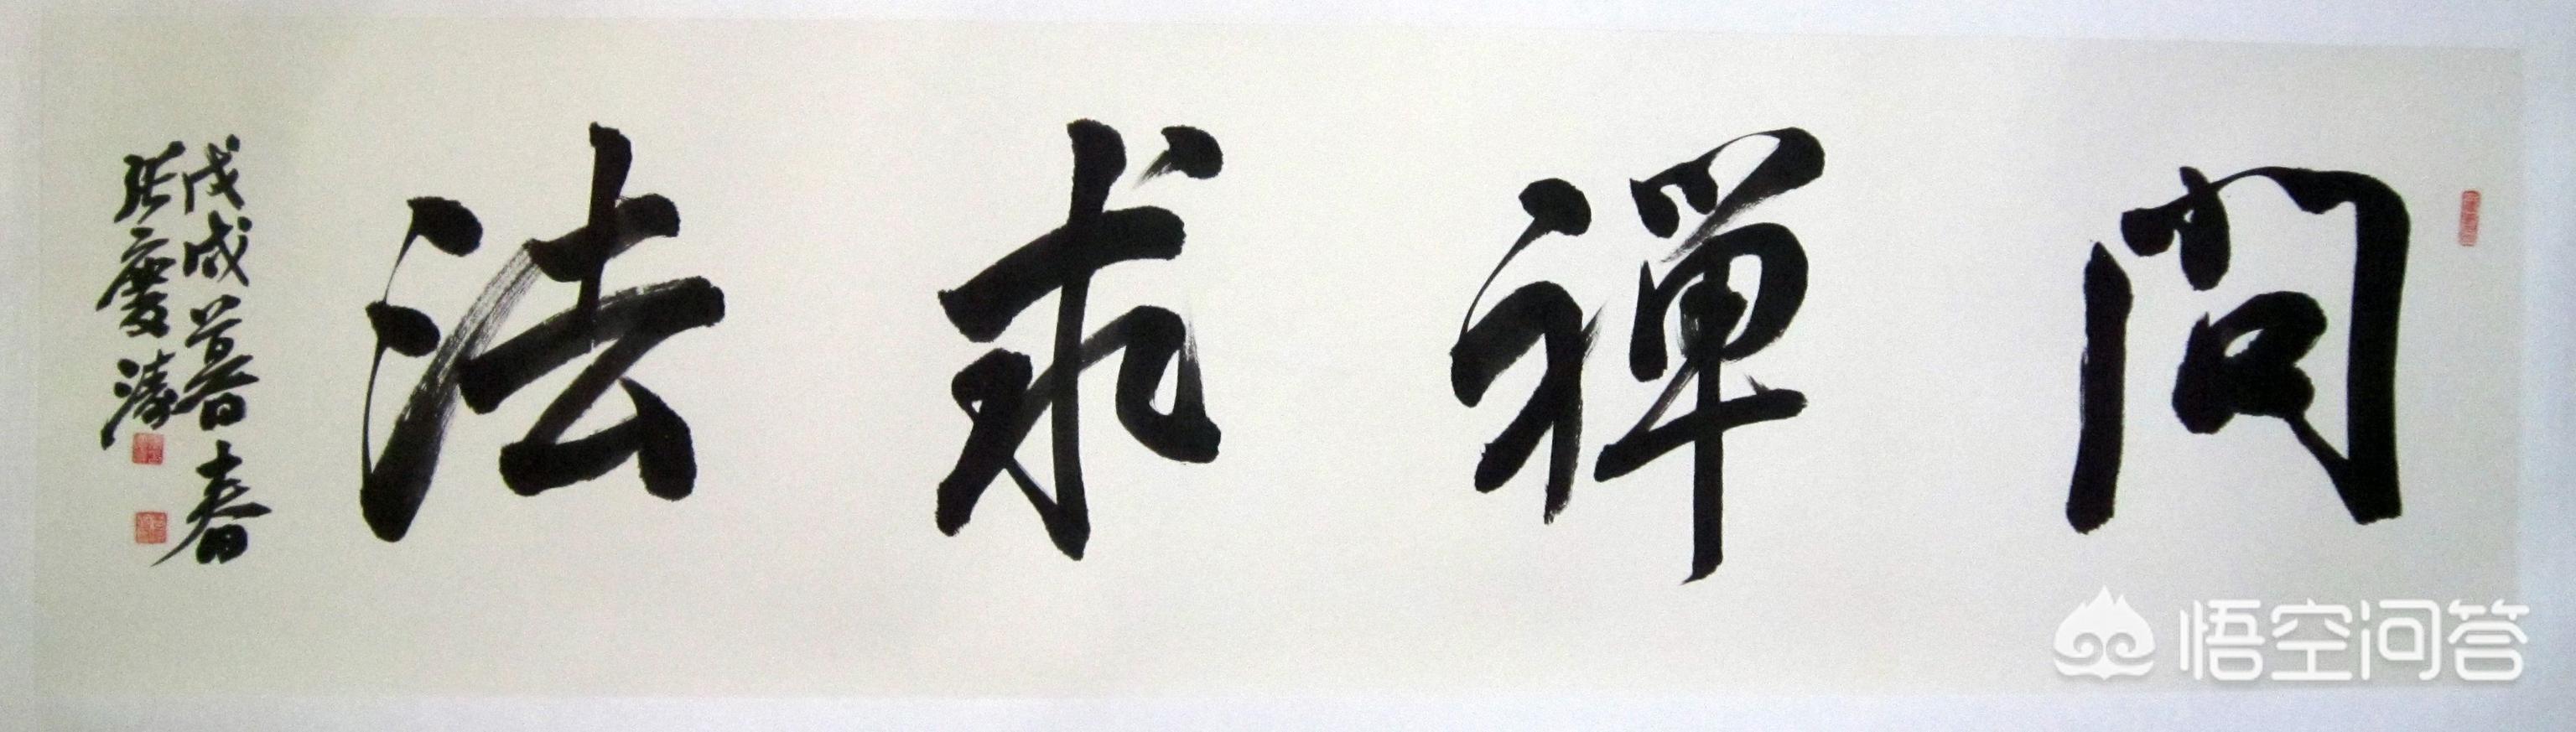 問禪求法
戊戌暮春
張慶濤
悟空问答